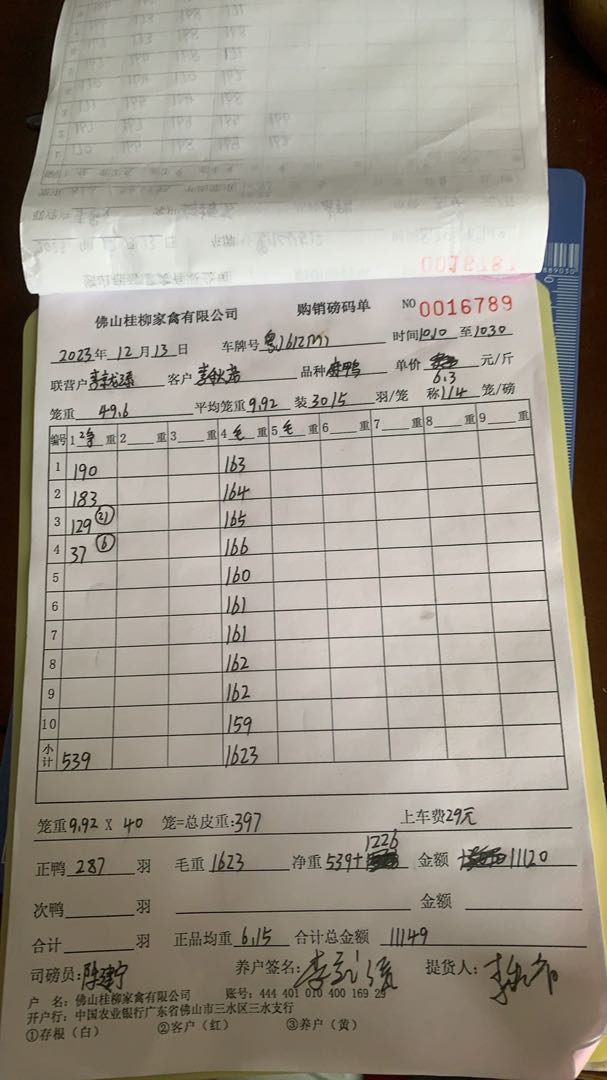 0016787
佛山桂柳家禽有限公司 购销磅码单 NO 0016789
2023年 12月 13日 车牌号 时间 1010 至 1030
联营户 客户 品种 麻鸭 单价 6.3 元/斤
笼重 49.6 平均笼重 9.92 装 3015 羽/笼 称 114 笼/磅
编号 1 2等 重 2 重 3 重 4 毛 重 5 毛 重 6 重 7 重 8 重 9 重
1 190 163
2 183 164
3 129 (21) 165
4 37 (6) 166
5 160
6 161
7 161
8 162
9 162
10 159
小计 539 1623
笼重 9.92 X 40 笼=总皮重: 397 上车费 29元
正鸭 287 羽 毛重 1623 净重 539+1226 金额 11120
次鸭 羽 金额
合计 羽 正品均重 6.15 合计总金额 11149
司磅员: 陈建宁 养户签名: 提货人:
户 名: 佛山桂柳家禽有限公司 账号: 444 401 010 400 169 29
开户行: 中国农业银行广东省佛山市三水区三水支行
①存根(白) ②客户(红) ③养户(黄)